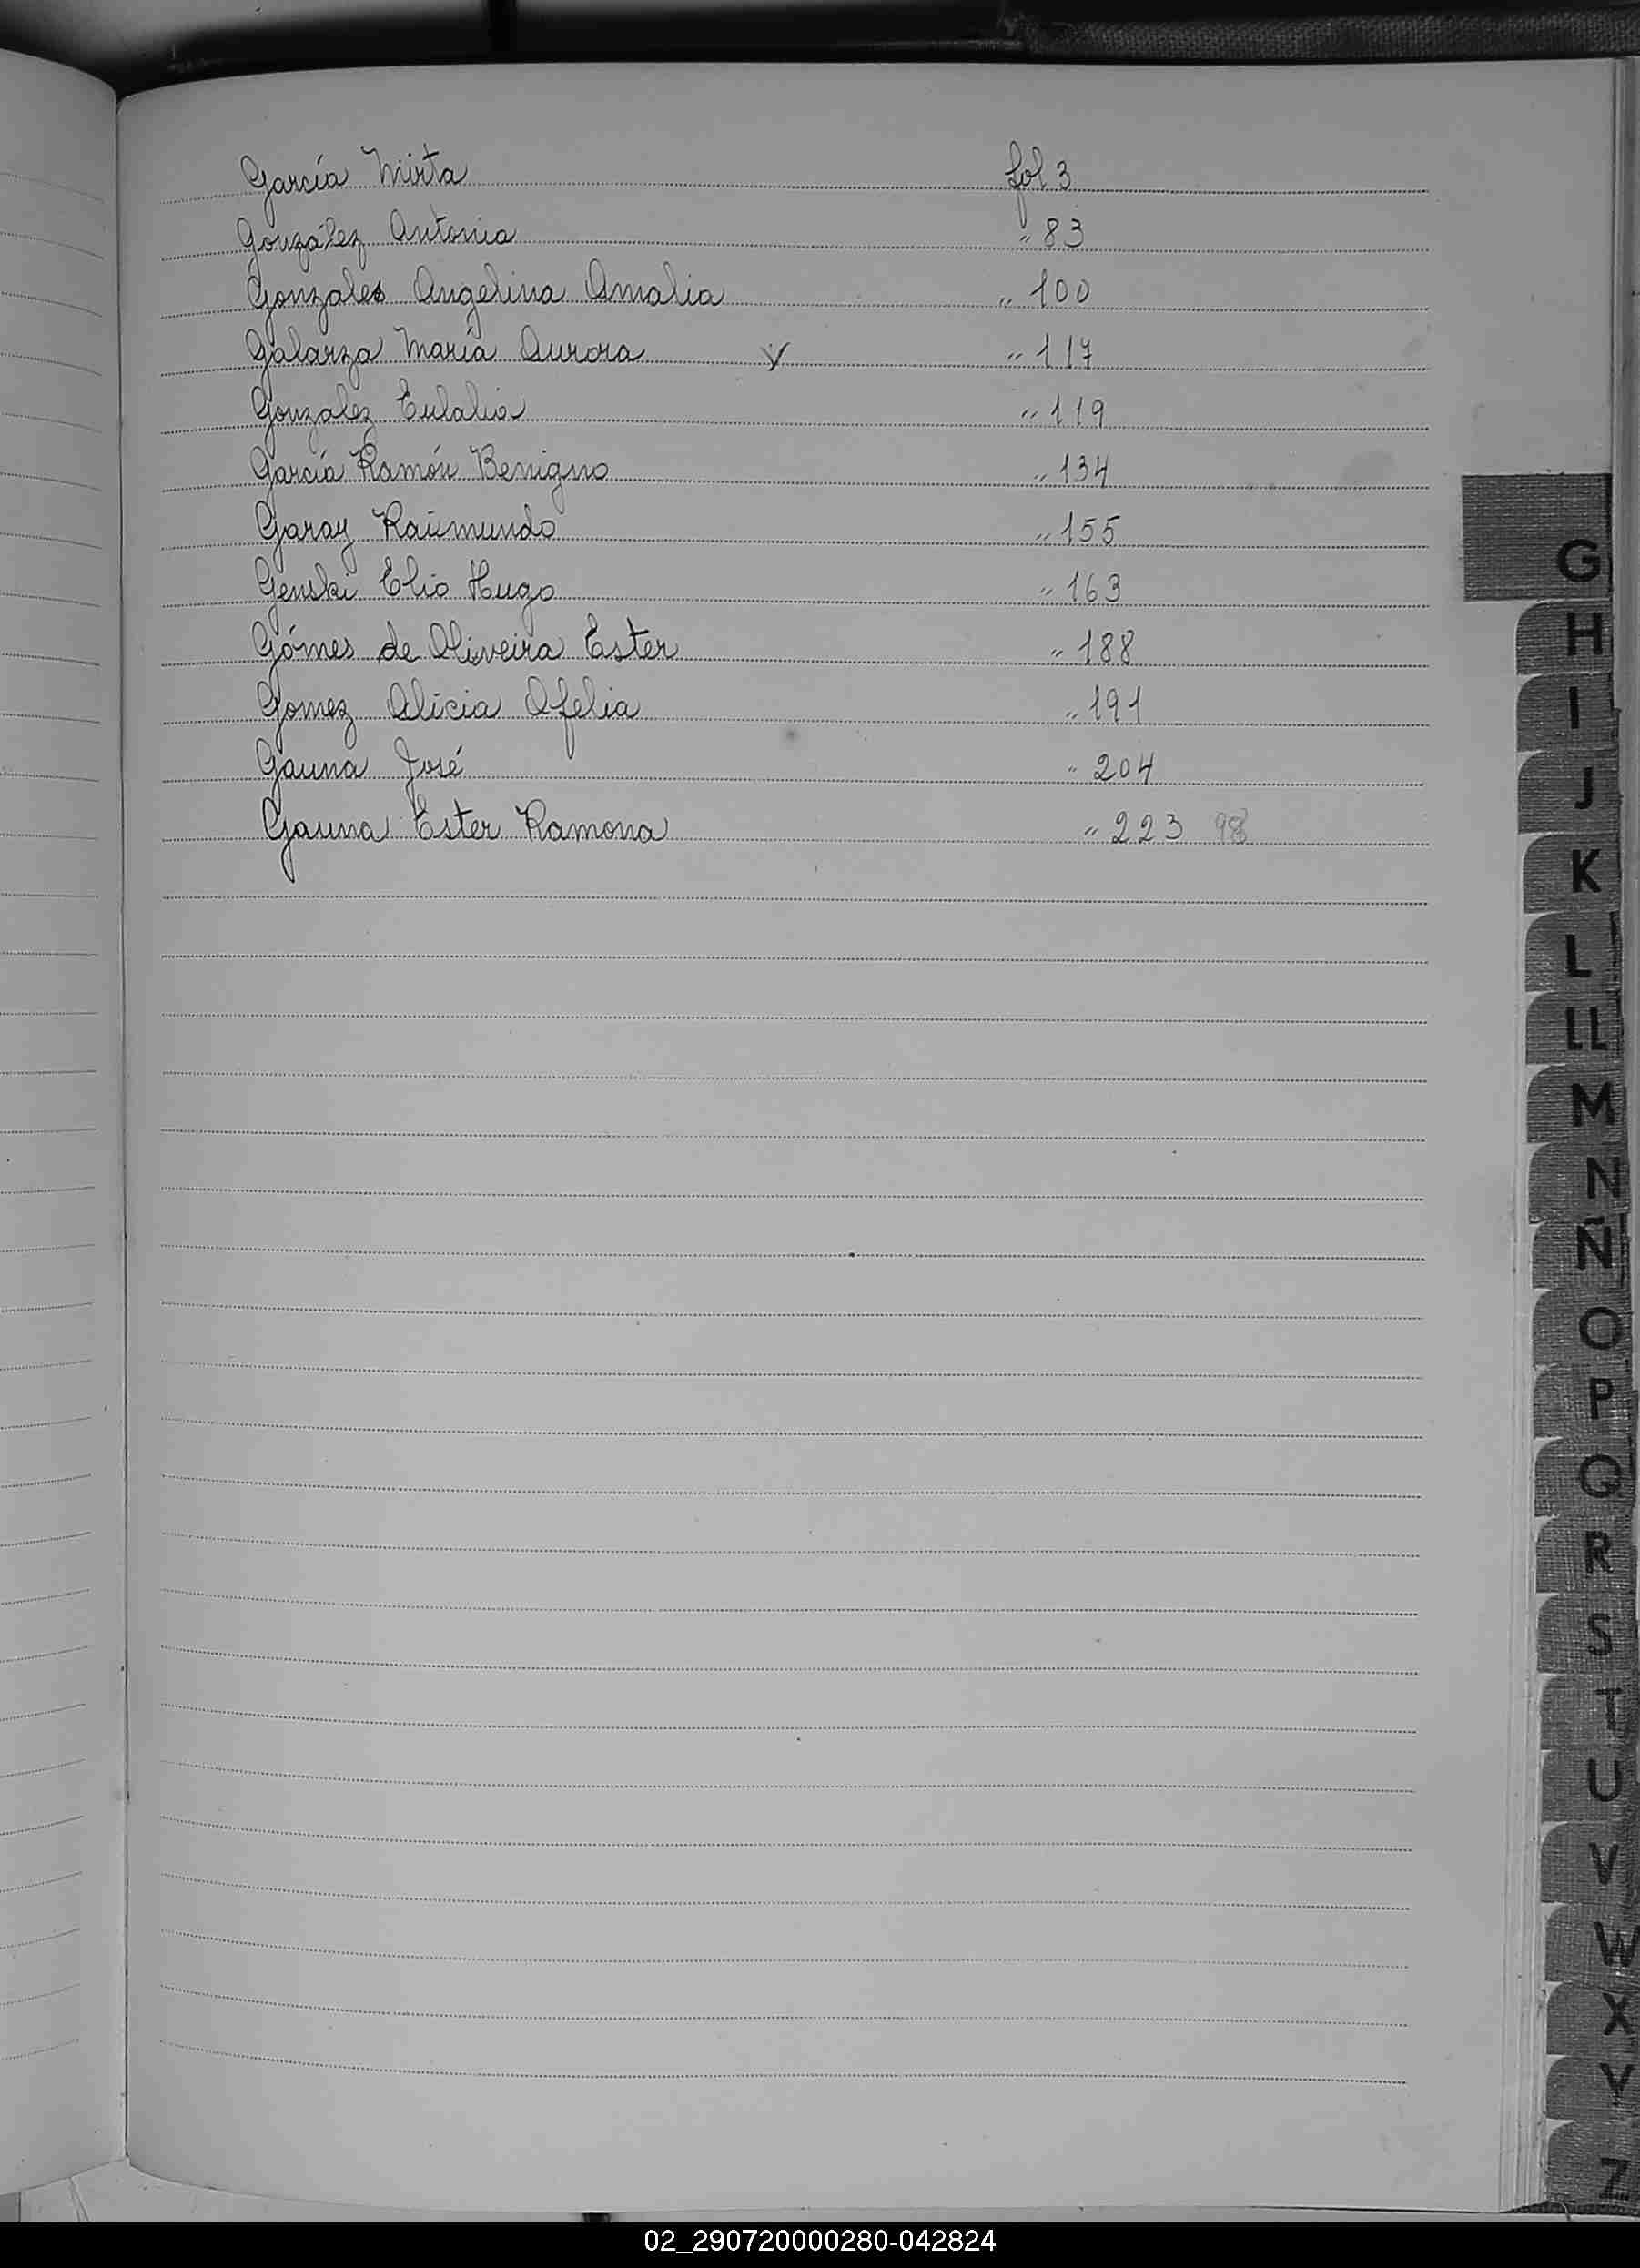 García Mirta fol 3
González Antonia " 83
Gonzales Angelina Amalia " 100
Galarza María Aurora v " 117
Gonzalez Eulalia " 119
García Ramón Benigno " 134
Garay Raimundo " 155
Genski Elio Hugo " 163
Gómes de Oliveira Ester " 188
Gomez Alicia Ofelia " 191
Gauna José " 204
Gauna Ester Ramona " 223 98
G
H
I
J
K
L
LL
M
N
Ñ
O
P
Q
R
S
T
U
V
W
X
Y
Z
02_290720000280-042824